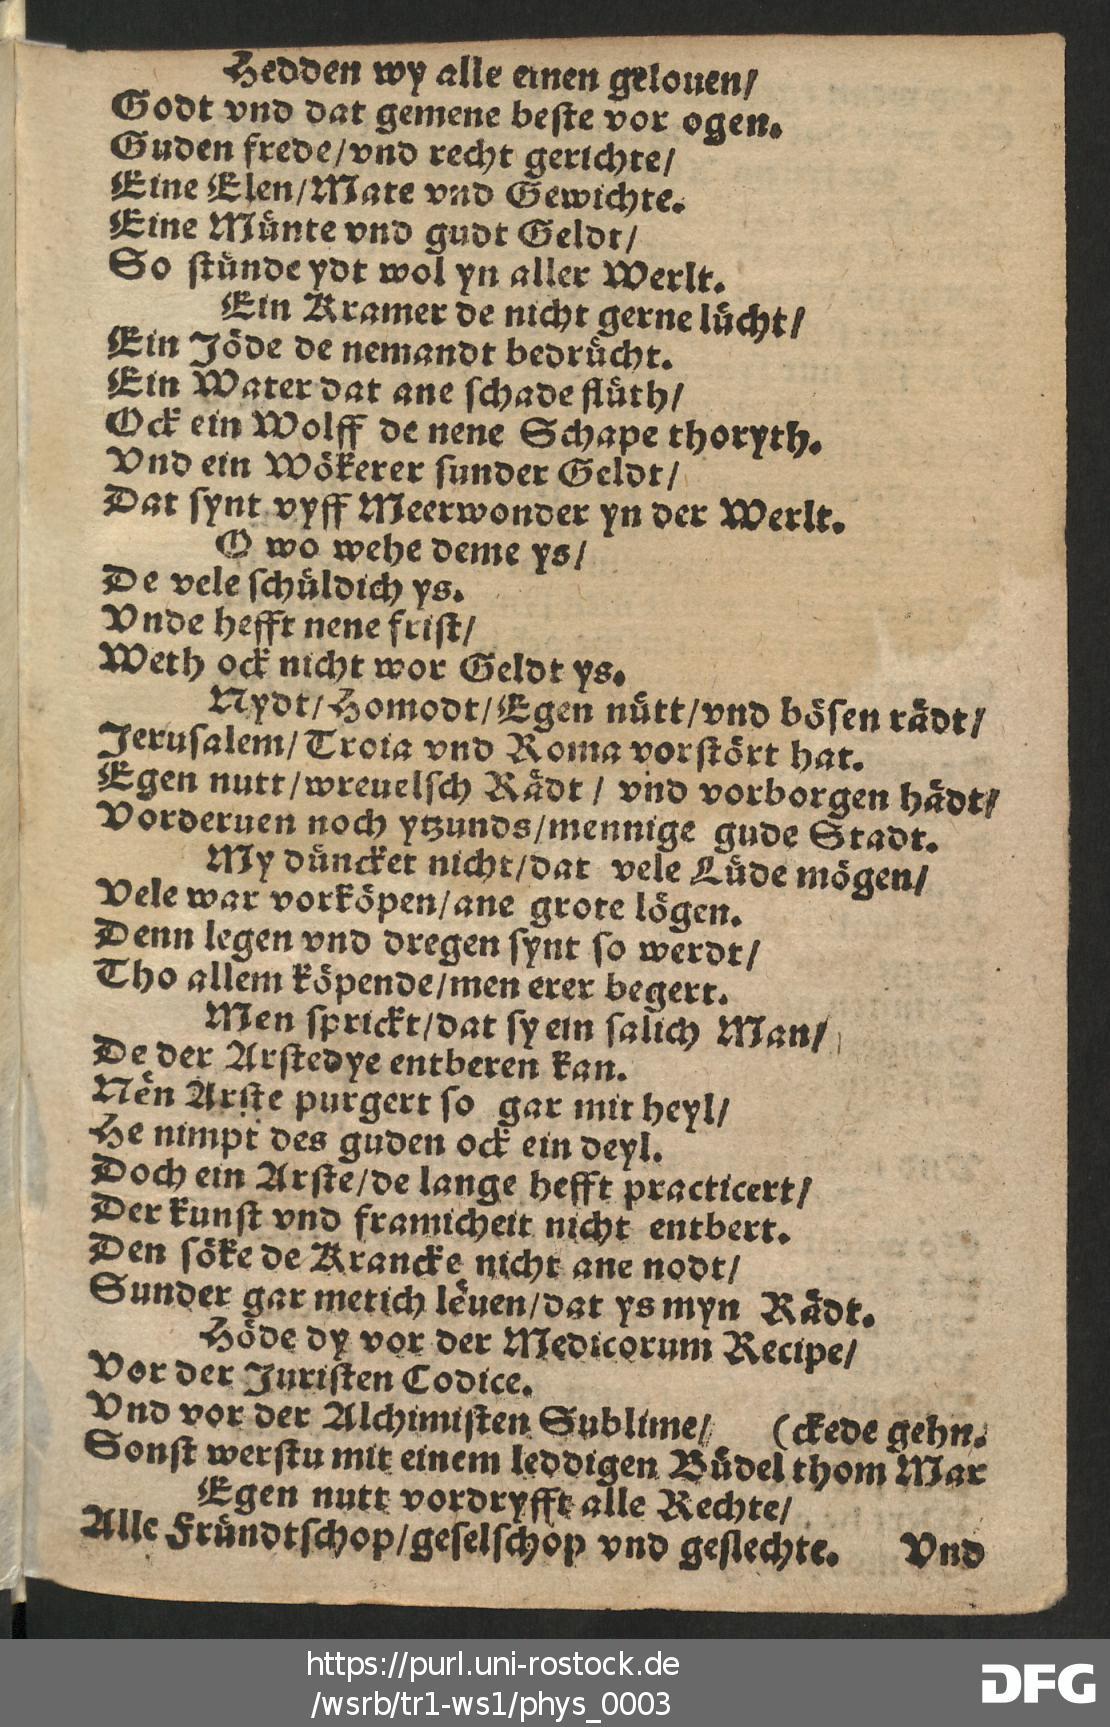 Hedden wy alle einen gelouen/
Godt vnd dat gemene beste vor ogen.
Guden frede/vnd recht gerichte/
Eine Elen/Mate vnd Gewichte.
Eine Münte vnd gudt Geldt/
So stünde ydt wol yn aller Werlt.
Ein Kramer de nicht gerne lücht/
Ein Jöde de nemandt bedrücht.
Ein Water dat ane schade flüth/
Ock ein Wolff de nene Schape thoryth.
Vnd ein Wökerer sunder Geldt/
Dat synt vyff Meerwonder yn der Werlt.
O wo wehe deme ys/
De vele schüldich ys.
Vnde hefft nene frist/
Weth ock nicht wor Geldt ys.
Nydt/Homodt/Egen nütt/vnd bösen rädt/
Jerusalem/Troia vnd Roma vorstört hat.
Egen nutt/wreuelsch Rädt/ vnd vorborgen hädt/
Vorderuen noch ytzunds/mennige gude Stadt.
My düncket nicht/dat vele Lüde mögen/
Vele war vorköpen/ane grote lögen.
Denn legen vnd dregen synt so werdt/
Tho allem köpende/men erer begert.
Men sprickt/dat sy ein salich Man/
De der Arstedye entberen kan.
Nën Arste purgert so gar mit heyl/
He nimpt des guden ock ein deyl.
Doch ein Arste/de lange hefft practicert/
Der kunst vnd framicheit nicht entbert.
Den söke de Krancke nicht ane nodt/
Sunder gar metich lëuen/dat ys myn Rädt.
Höde dy vor der Medicorum Recipe/
Vor der Juristen Codice.
Vnd vor der Alchimisten Sublime/ (ckede gehn.
Sonst werstu mit einem leddigen Büdel thom Mar
Egen nutt vordryfft alle Rechte/
Alle Fründtschop/geselschop vnd geslechte. Vnd
https://purl.uni-rostock.de
/wsrb/tr1-ws1/phys_0003
DFG